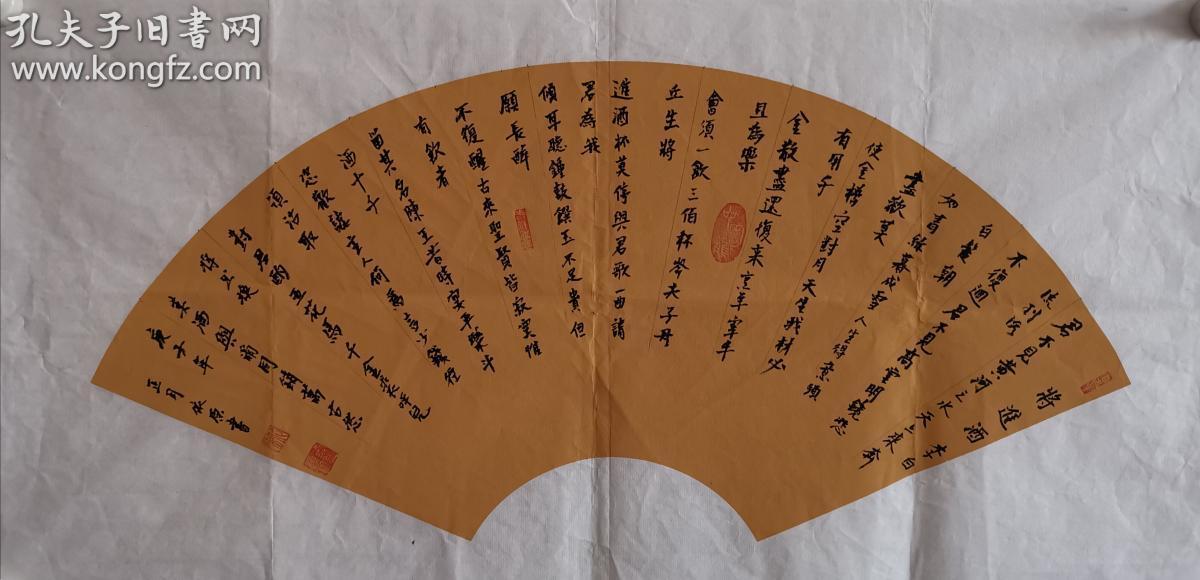 孔夫子旧书网
www.kongfz.com
將進酒 李白
君不見黃河之水天上来奔
流到海
不復迴君不見高堂明鏡悲
白髮朝
如青絲暮成雪人生得意須
盡歡莫
使金樽空對月天生我材必
有用千
金散盡還復来烹羊宰牛
且為樂
會須一飲三佰杯岑夫子丹
丘生將
進酒杯莫停與君歌一曲請
君為我
傾耳聽鐘鼓饌玉不足貴但
願長醉
不復醒古来聖賢皆寂寞惟
有飲者
留其名陳王昔時宴平樂斗
酒十千
恣歡謔主人何為言少錢徑
須沽取
對君酌五花馬千金裘呼兒
將出換
美酒與爾同銷萬古愁
庚子年
正月 書